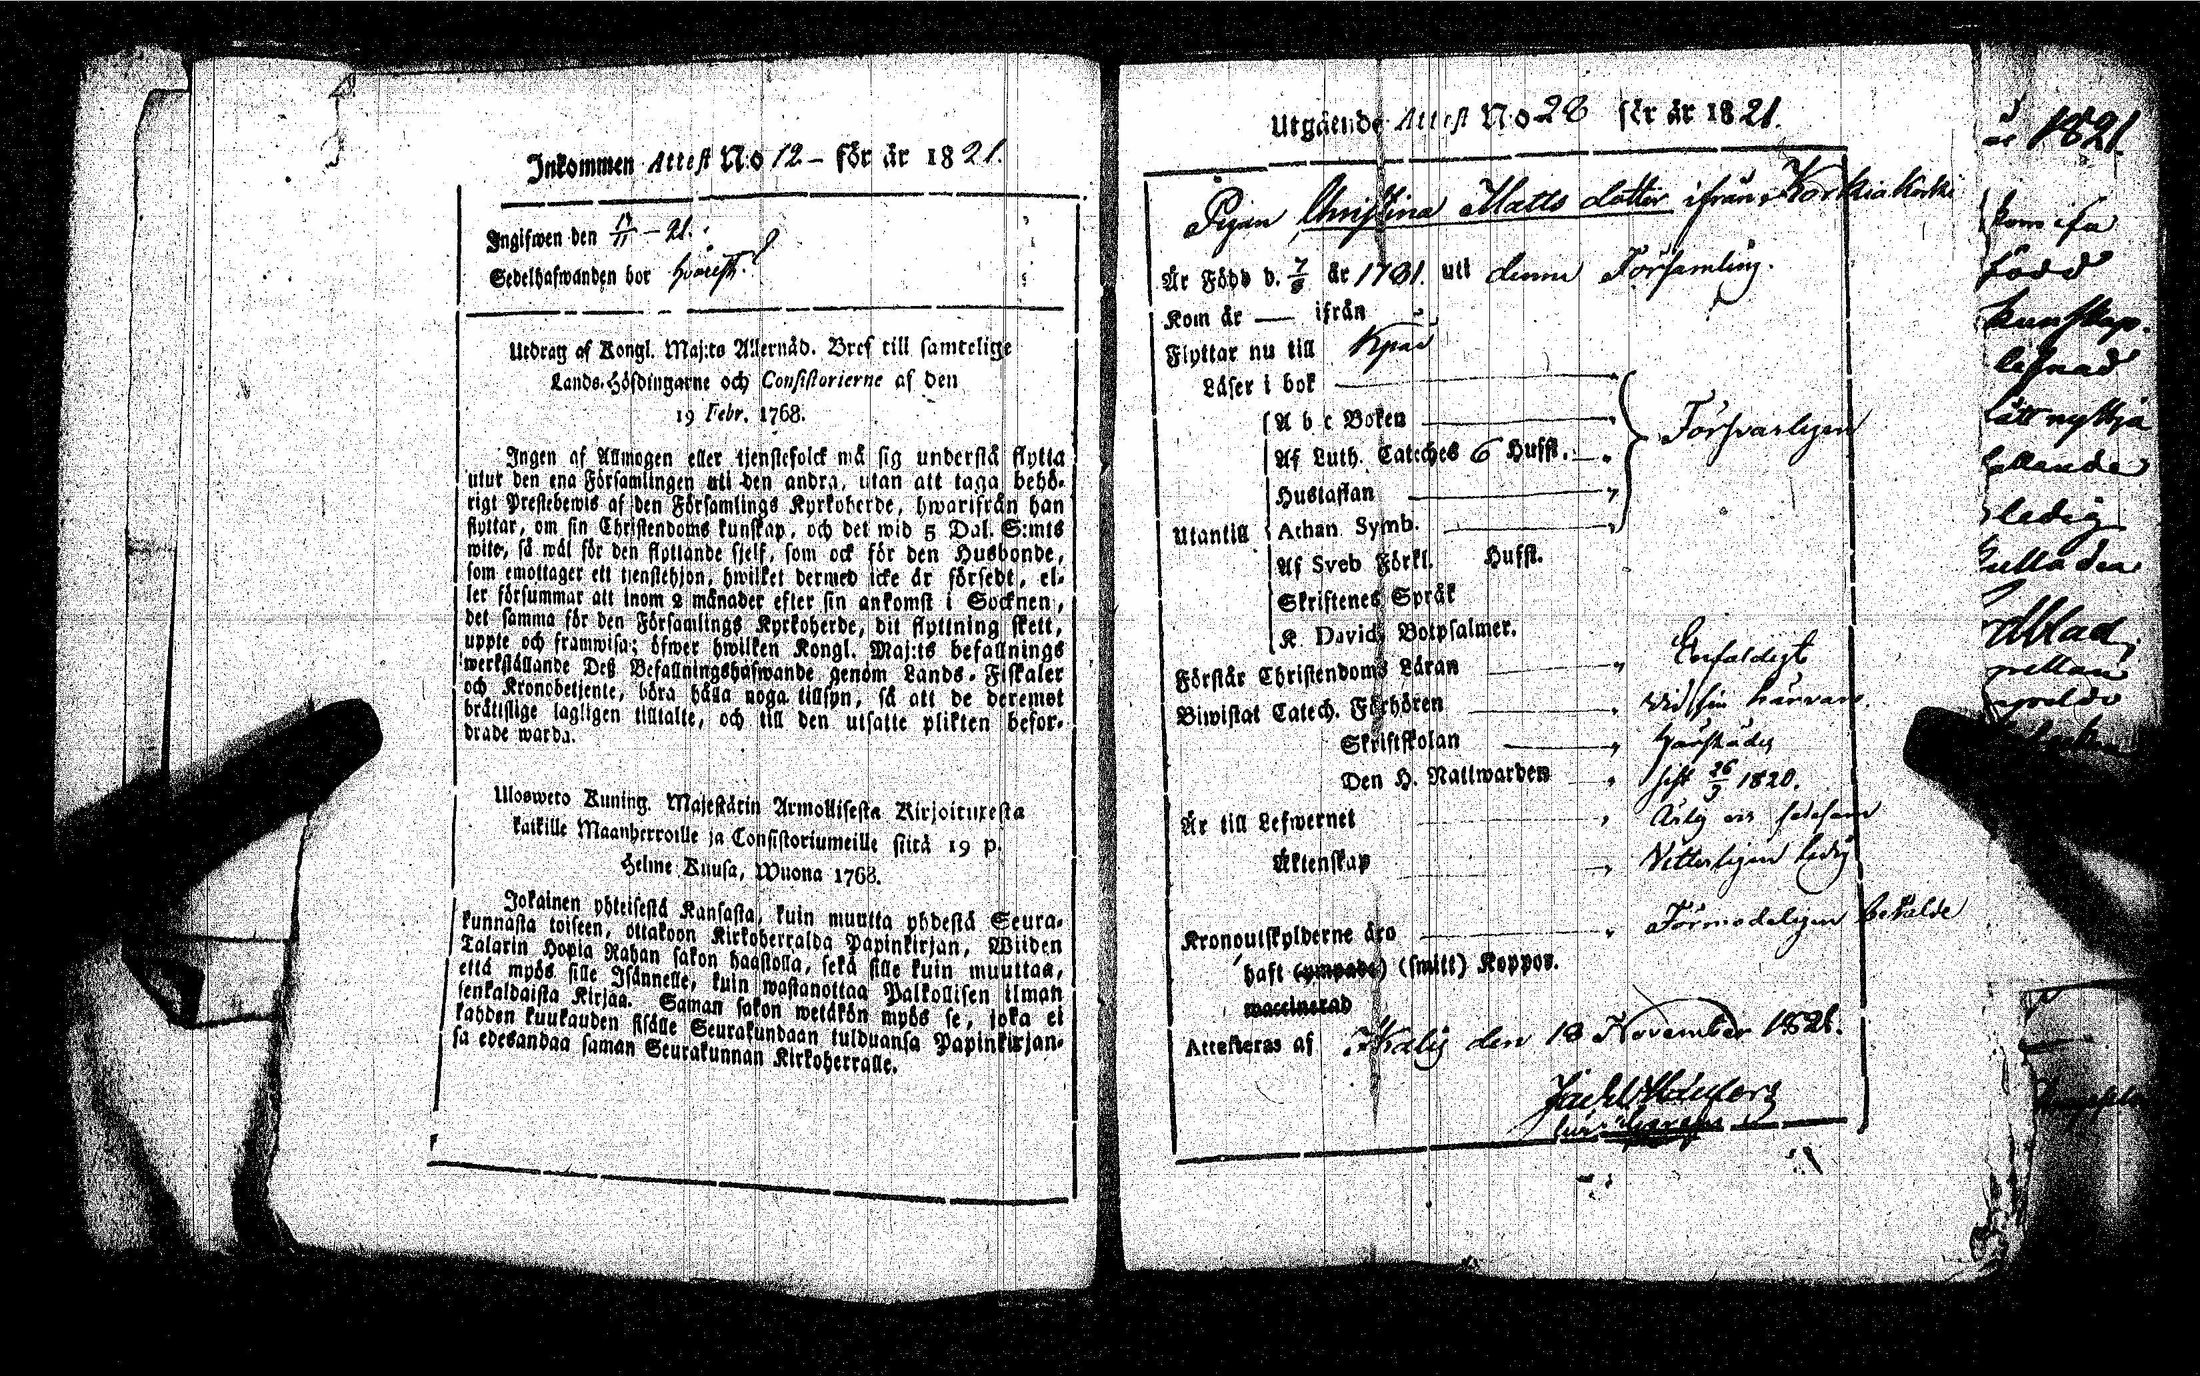 Inkommen Attest No 12 – för år 1821.
Ingifwen den 17/11 – 21.
Sedelhafwanden bor hvarest?
Utdrag af Kongl. Maj:ts Allernåd. Bref till samtelige
Lands-Höfdingarne och Consistorierne af den
19 Febr. 1768.
Ingen af Allmogen eller tjenstefolck må sig understå flytta
utur den ena Församlingen uti den andra, utan att taga behö-
rigt Prestebewis af den Församlings Kyrkoherde, hwarifrån han
flyttar, om sin Christendoms kunskap, och det wid 5 Dal. S:mts
wite, så wäl för den flyttande sjelf, som ock för den Husbonde,
som emottager ett tjenstehjon, hwilket dermed icke är försedt, el-
ler försummar att inom 2 månader efter sin ankomst i Socknen,
det samma för den Församlings Kyrkoherde, dit flyttning skett,
uppte och framwisa; öfwer hwilken Kongl. Maj:ts befallnings
werkställande Deß Befallningshafwande genom Lands-Fiskaler
och Kronobetjente, böra hålla noga tillsyn, så att de deremot
bråttslige lagligen tilltalte, och till den utsatte plikten befor-
drade warda.
Ulosweto Kuning. Majestätin Armollisesta Kirjoituxesta
kaikille Maanherroille ja Consistoriumeille siitä 19 p.
Helme Kuusa, Wuona 1768.
Jokainen yhteisestä Kansasta, kuin muutta yhdestä Seura-
kunnasta toiseen, ottakoon Kirkoherralda Papinkirjan, Wiiden
Talarin Hopia Rahan sakon haastolla, sekä sille kuin muuttaa,
että myös sille Isännelle, kuin wastanottaa Palkollisen ilman
senkaldaista Kirjaa. Saman sakon wetäkön myös se, joka ei
kahden kuukauden sisälle Seurakundaan tulduansa Papinkirjan-
sa edesandaa saman Seurakunnan Kirkoherralle.
Utgående Attest No 28 för år 1821.
Pigan Christina Matts dotter ifrån Korkiakoski
Är Född d. 7/8 år 1781. uti denna Församling.
Kom år — ifrån
Flyttar nu till
Läser i bok
A b c Boken
Af Luth. Cateches 6 Hufst. Försvarligen
Hustaflan
Utantill Athan Symb.
Af Sveb Förkl. Hufst.
Skriftenes Språk
K. Davids Botpsalmer.
Förstår Christendoms Läran Enfaldigt
Biwistat Catech. Förhören vid sin härvaro.
Skriftskolan
Den H. Nattwarden sist 26/3 1820.
Är till Lefwernet Ärlig
Äktenskap Vitterligen ledig
Kronoutskylderne äro Förmodeligen betalde
haft (ympade) (smitt) Koppor.
vaccinerad
Attesteras af Ikalis den 13 November 1821.